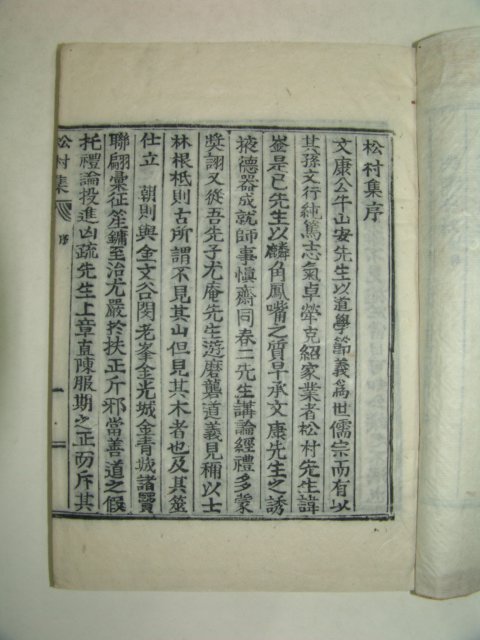 松村集序
文康公牛山安先生以道學節義爲世儒宗而有以
其孫文行純篤志氣卓犖克紹家業者松村先生諱
崟是已先生以麟角鳳嘴之質早承文康先生之誘
掖德器成就師事愼齋同春二先生講論經禮多蒙
奬詡又從吾先子尤庵先生遊磨礱道義見稱以士
林根柢則古所謂不見其山但見其木者也及其筮
仕立 朝則與金文谷閔老峯金光城金靑城諸賢
聯翩彙征笙鏞至治尤嚴於扶正斥邪當善道之假
托禮論投進凶疏先生上章直陳服期之正而斥其
松村集 序 一